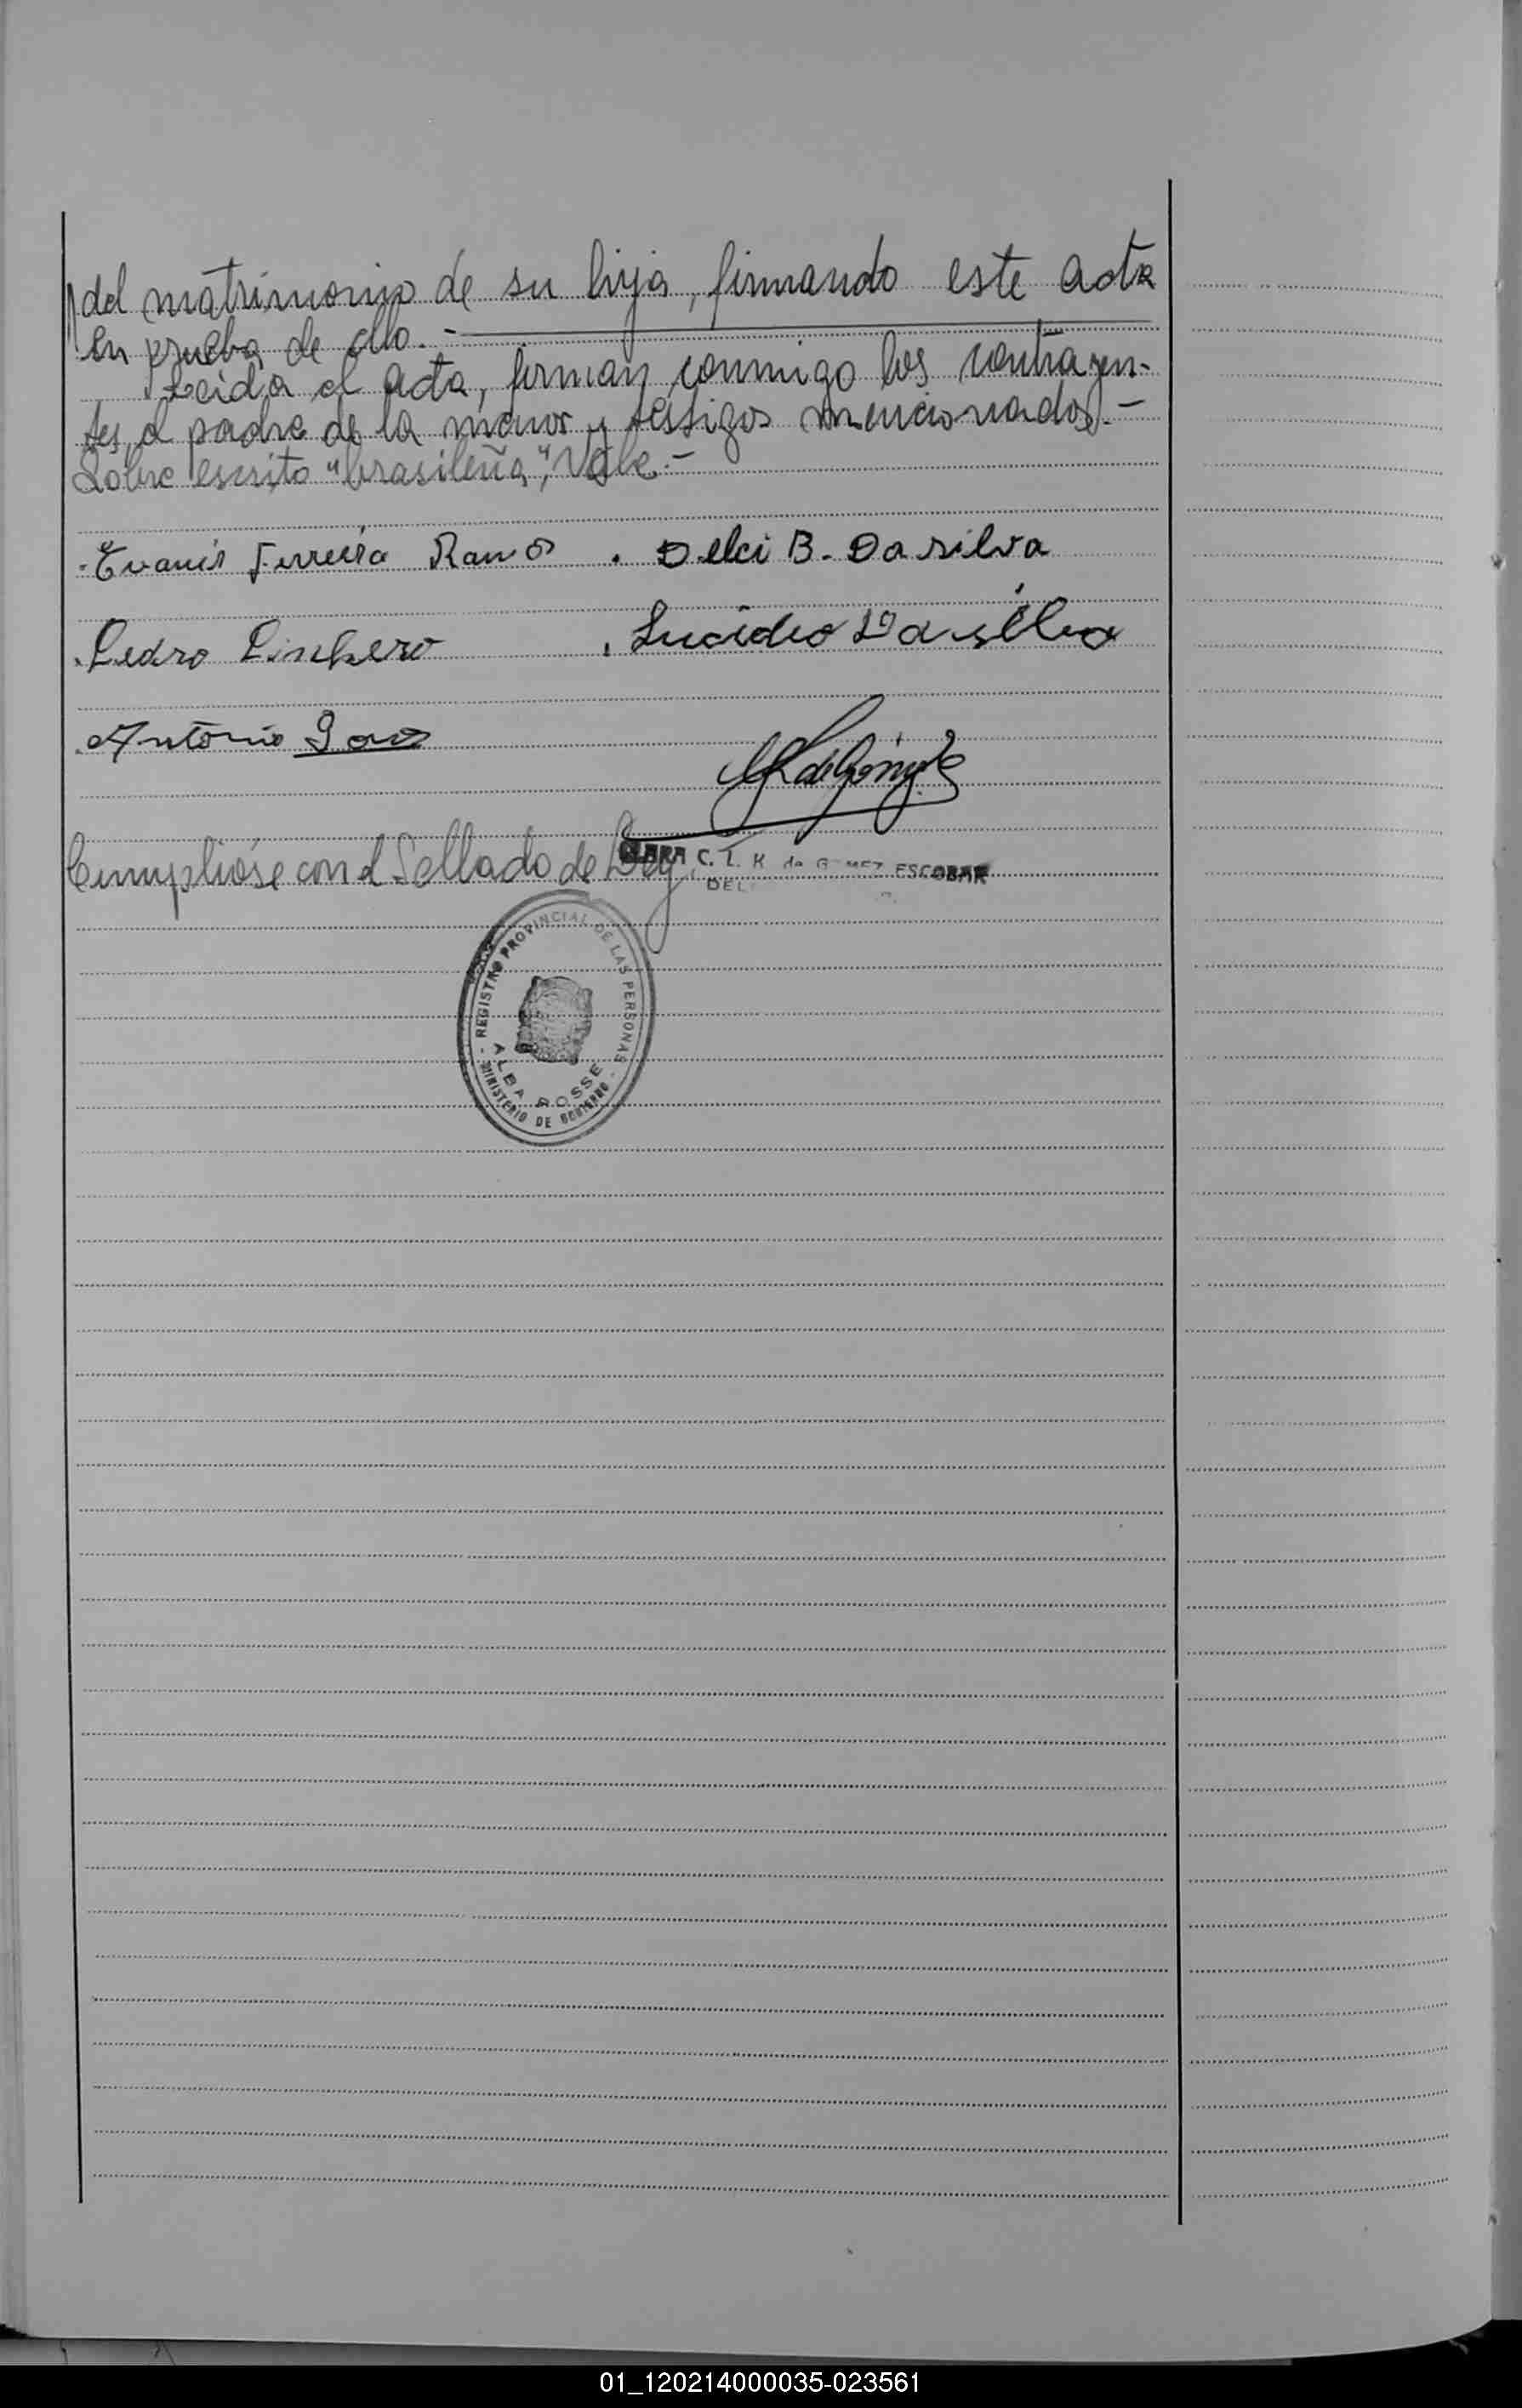 del matrimonio de su hija, firmando este acta
en prueba de ello. -
Leida el acta, firman conmigo los contrayen-
tes, el padre de la menor y testigos mencionados. -
Sobre escrito "brasileña", Vale. -
Evanir Ferreira Ramos . Delci B. Da silva
Pedro Pinhero . Lucidio Da silva
Antônio
Cumplióse con el Sellado de Ley.
CLARA C. L. K. de GOMEZ ESCOBAR
DEL
REGISTRO PROVINCIAL DE LAS PERSONAS
ALBA POSSE
MINISTERIO DE GOBIERNO
01_120214000035-023561